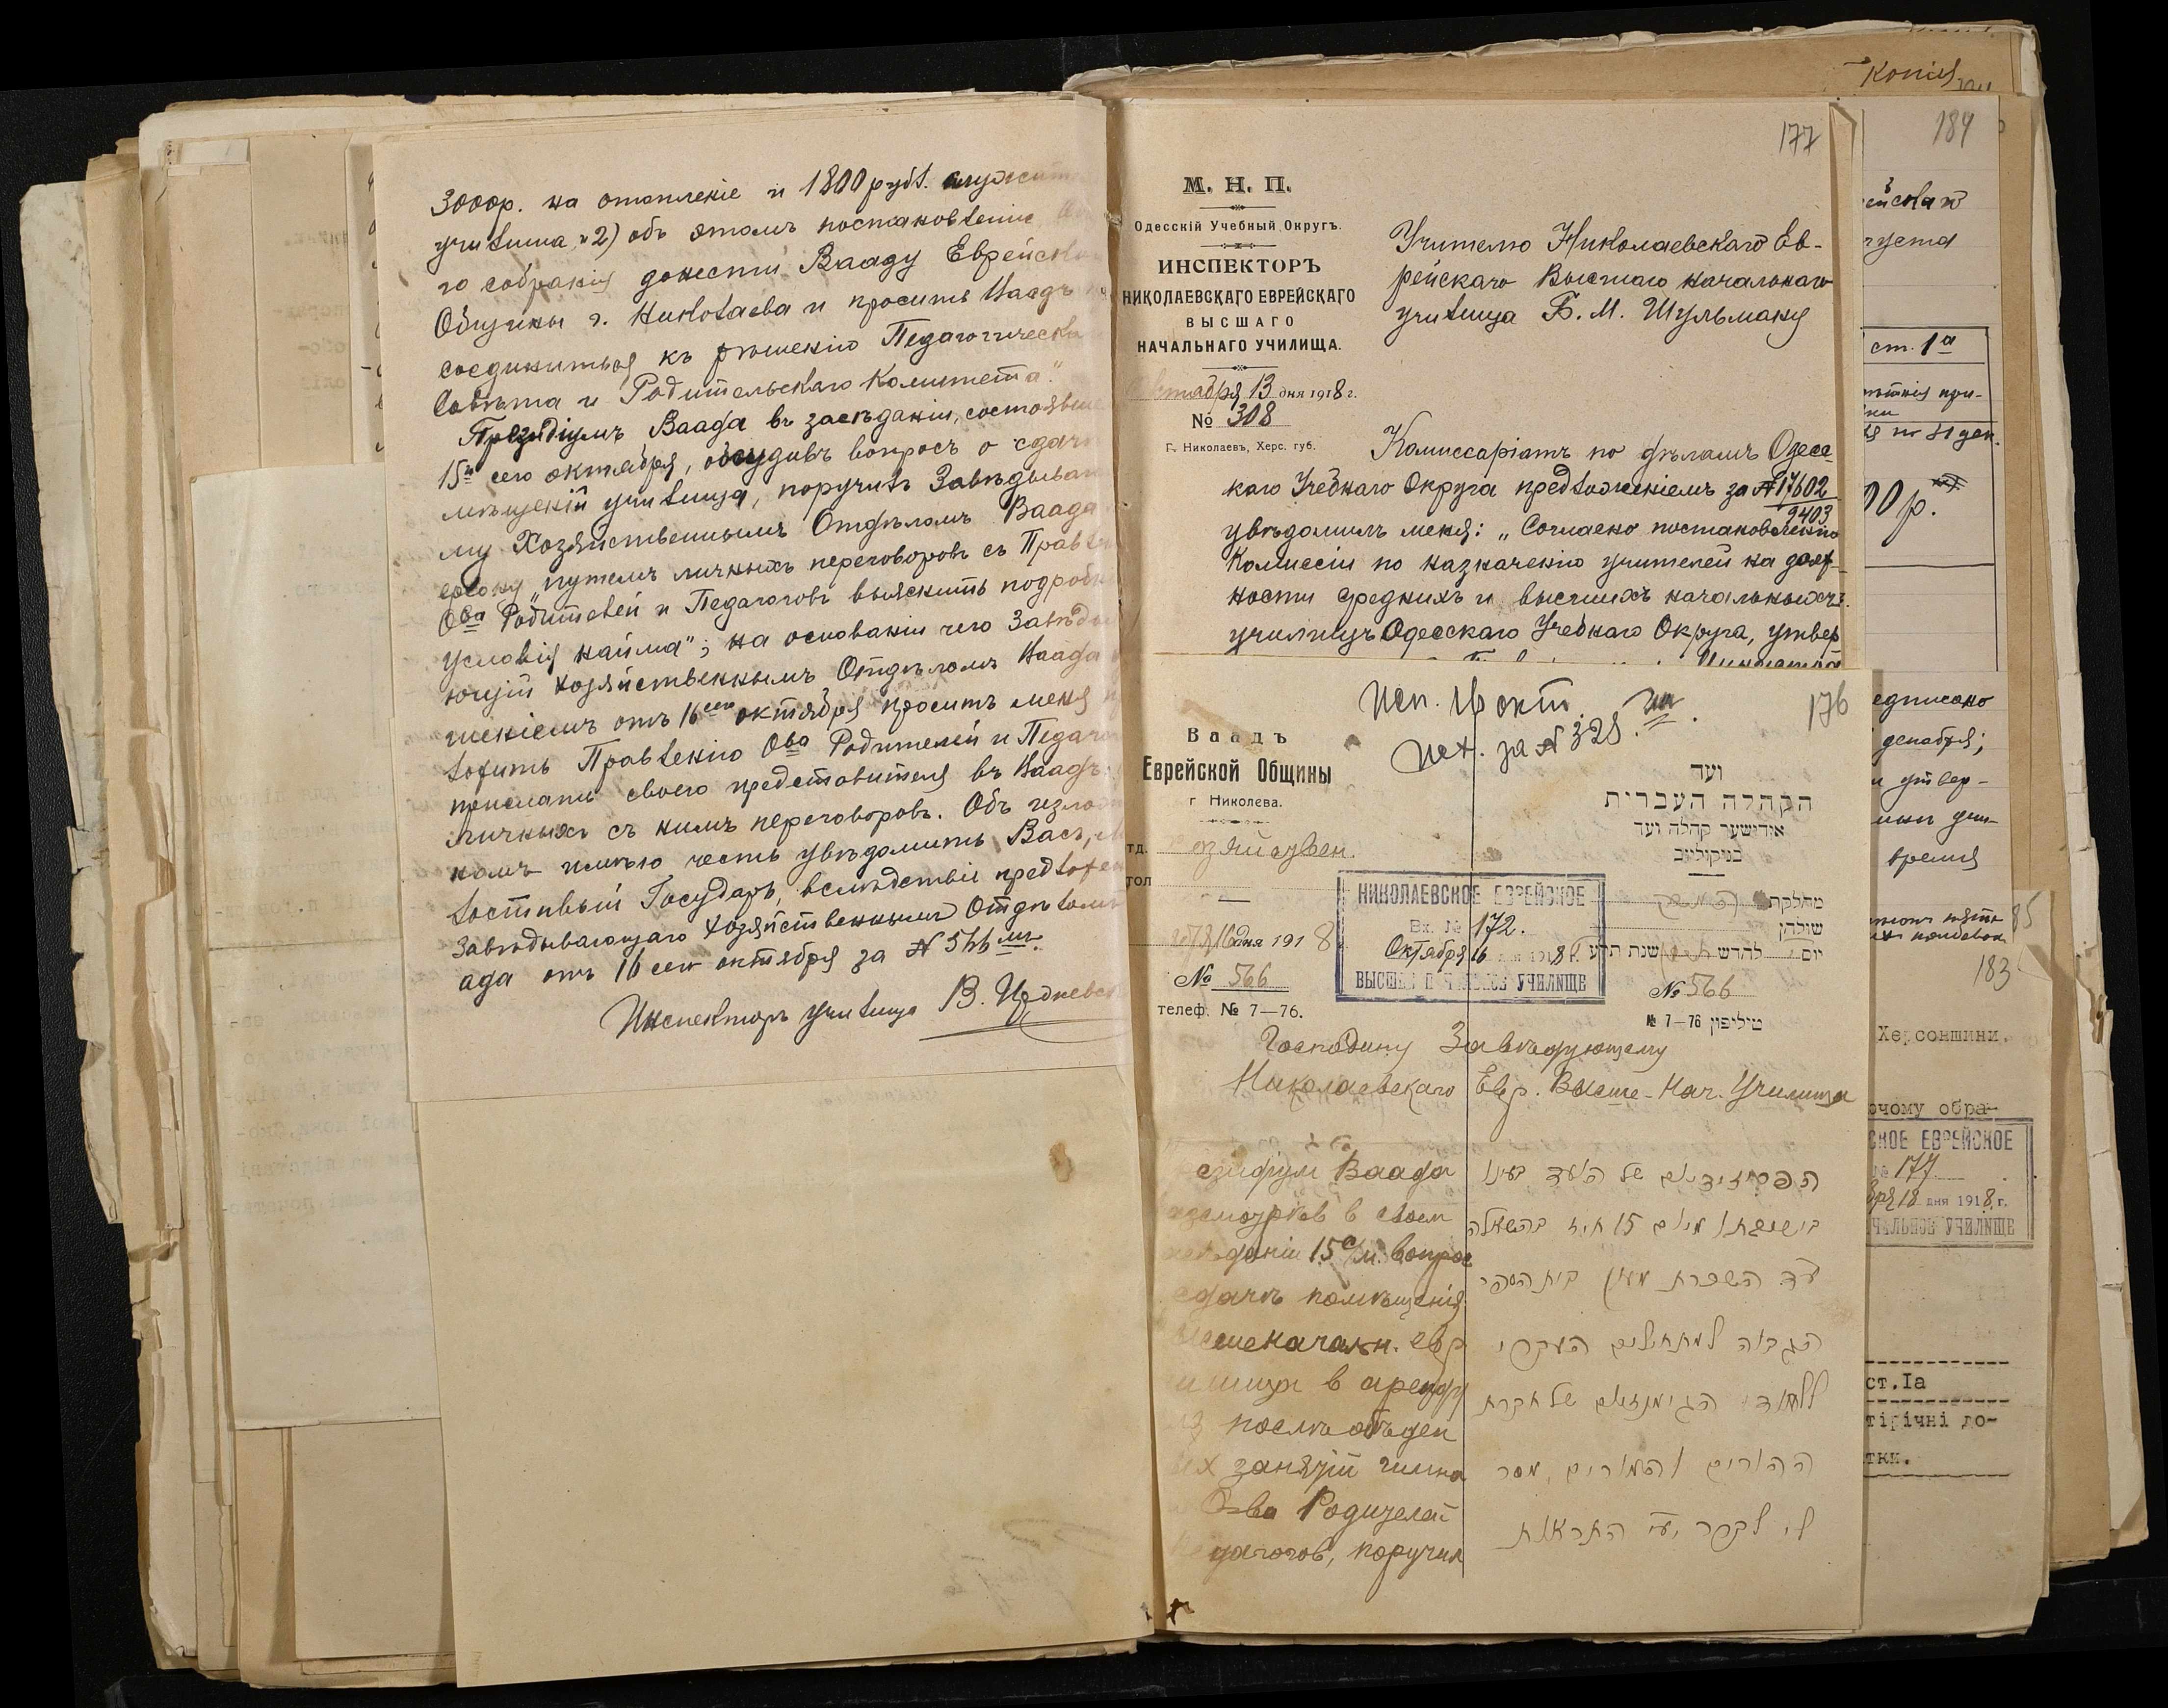 3000р. на отопленіе и 1800 рубл.
училища, и 2) объ этомъ постановленіе
го собранія донести Вааду Еврейско
Общины г. Николаева и просить Ваадъ
соединиться къ рѣшенію Педагогическа
Совѣта и Родительскаго Комитета".
Президіумъ Ваада въ засѣданіи, состоявше
15го сего октября, обсудивъ вопросъ о сдачѣ
мѣщеній училища, поручилъ Завѣдываю
му Хозяйственнымъ Отдѣломъ Ваада
"путемъ личныхъ переговоровъ съ Правле
Ова Родителей и Педагоговъ выяснить подробн
условія найма"; на основаніи чего Завѣды
ющій Хозяйственнымъ Отдѣломъ Ваада
шеніемъ отъ 16 сего октября проситъ меня
ложить Правленію Ова Родителей и Педаго
прислать своего представителя въ Ваадъ
личныхъ съ нимъ переговоровъ. Объ изло
номъ имѣю честь увѣдомить Васъ, М
лостивый Государь, вслѣдствіе предлож
Завѣдывающаго Хозяйственнымъ Отдѣломъ
ада отъ 16 сего октября за № 566
Инспекторъ училища В.
Копія
177
М. Н. П.
Одесскій Учебный Округъ.
ИНСПЕКТОРЪ
НИКОЛАЕВСКАГО ЕВРЕЙСКАГО
ВЫСШАГО
НАЧАЛЬНАГО УЧИЛИЩА.
октября 13 дня 1918 г.
№ 308
Г. Николаевъ, Херс. губ.
Учителю Николаевскаго Ев-
рейскаго Высшаго начальнаго
училища Б. М. Шульману
Комиссаріатъ по дѣламъ Одесс-
каго Учебнаго Округа предложеніемъ за № 17602
9403
увѣдомилъ меня: „Согласно постановленію
Комиссіи по назначенію учителей на долж-
ности среднихъ и высшихъ начальныхъ
училищъ Одесскаго Учебнаго Округа, утвер
176
Исп. 16 окт.
Исх. за № 328.
Ваадъ
Еврейской Общины
г Николева.
тд. озяйствен.
тол
16 дня 1918
№ 566
телеф. № 7—76.
ועד
הקהלה העברית
אידישער קהלה ועד
בניקולייוב
מחלקת
שולחן
יום לחדש שנת תרע
№ 566
טיליפון 76—7 №
НИКОЛАЕВСКОЕ ЕВРЕЙСКОЕ
Вх. № 172.
Октября 16 дня 1918 г.
ВЫСШЕЕ НАЧАЛЬНОЕ УЧИЛИЩЕ
Господину Завѣдующему
Николаевскаго Евр. Высше-Нач. Училища
езидіум Ваада
азсмотрѣв в своем
сѣданіи 15 с/м. вопрос
сдачѣ помѣщенія
ысшеначальн. евр
илища в аренду
послѣобѣден
ых занятій гимна
О-ва Родителей
дагогов, поручил
הפרזידיום של הועד בעינו
בישיבתו מיום 15 ח״ח בהשאלה
עד השכרת מעון בית הספר
הגבוה למתחילים העברי
ללמודי הגימנזיום של חברת
ההורים והמורים, מסר
לי לברר ע״י התראות
184
ейскаго
густа
ст. 1а
00 р.
едписано
декабря;
и утвер-
время
85
183
Херсонщини.
очому обра-
СКОЕ ЕВРЕЙСКОЕ
№ 177
бря 18 дня 1918 г.
ЧАЛЬНОЕ УЧИЛИЩЕ
ст.Іа
тірічні до-
тки.